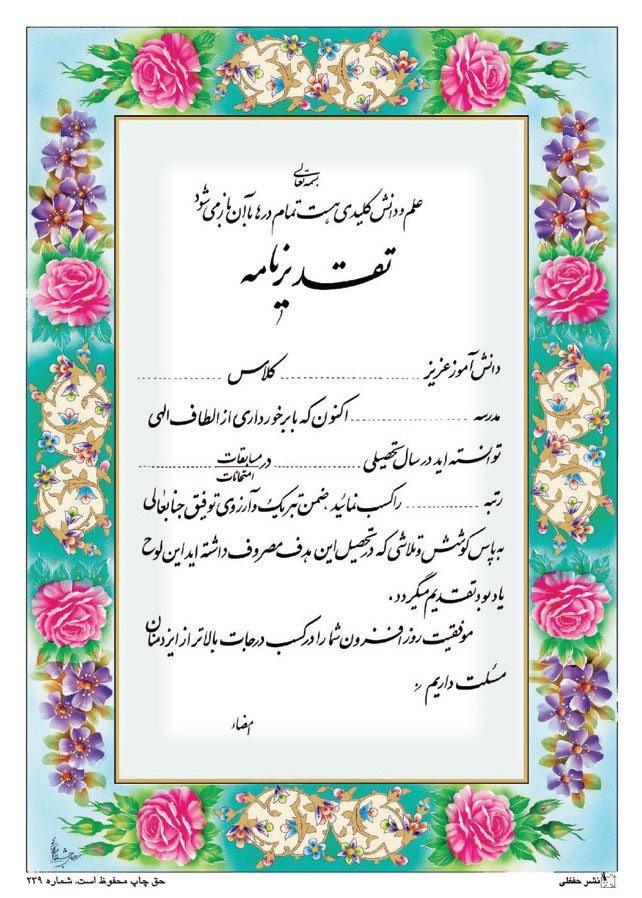 بسمه تعالی
علم و دانش کلیدی هست تمام درها با آن باز می شود
تقدیرنامه
دانش آموز عزیز .................... کلاس ....................
مدرسه .................... اکنون که با برخورداری از الطاف الهی
توانسته اید در سال تحصیلی .................... در مسابقات / امتحانات ....................
رتبه .................... را کسب نمائید، ضمن تبریک و آرزوی توفیق جنابعالی
به پاس کوشش و تلاشی که در تحصیل این هدف مصروف داشته اید این لوح
یادبود تقدیم میگردد.
موفقیت روز افزون شما را در کسب درجات بالاتر از ایزد منان
مسئلت داریم
امضاء
نشر حفظی
حق چاپ محفوظ است. شماره ۲۳۹